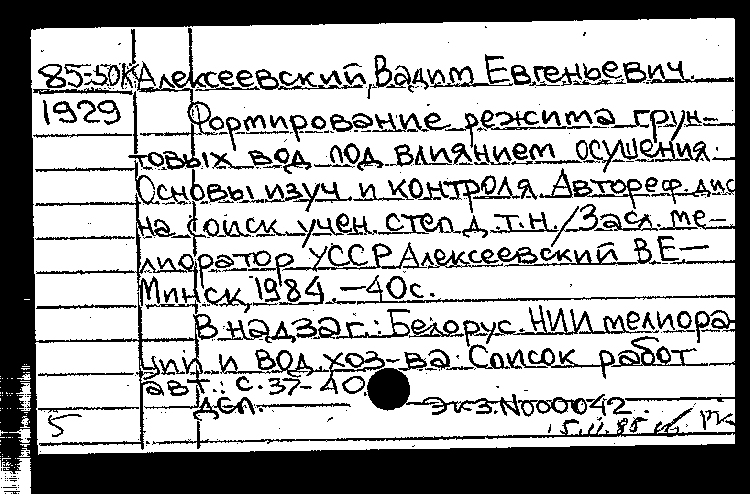 85-50К Алексеевский, Вадим Евгеньевич.
1929 Формирование режима грун-
товых вод под влиянием осушения.
Основы изуч. и контроля. Автореф. дис
на соиск. учен. степ. д.т.н. / Засл. ме-
лиоратор УССР Алексеевский В.Е —
Минск, 1984. — 40с.
В надзаг.: Белорус. НИИ мелиора-
ции и вод. хоз-ва. Список работ
авт.: с. 37-40
ДСП. Экз. N000042.
5 15.II.85